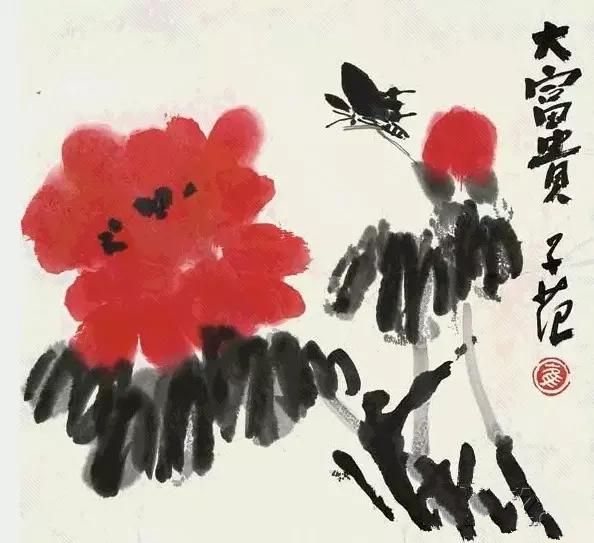 大富貴
子范